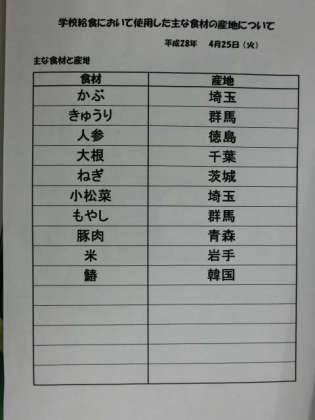 学校給食において使用した主な食材の産地について
平成28年 4月25日（火）
主な食材と産地
食材 産地
かぶ 埼玉
きゅうり 群馬
人参 徳島
大根 千葉
ねぎ 茨城
小松菜 埼玉
もやし 群馬
豚肉 青森
米 岩手
鰆 韓国